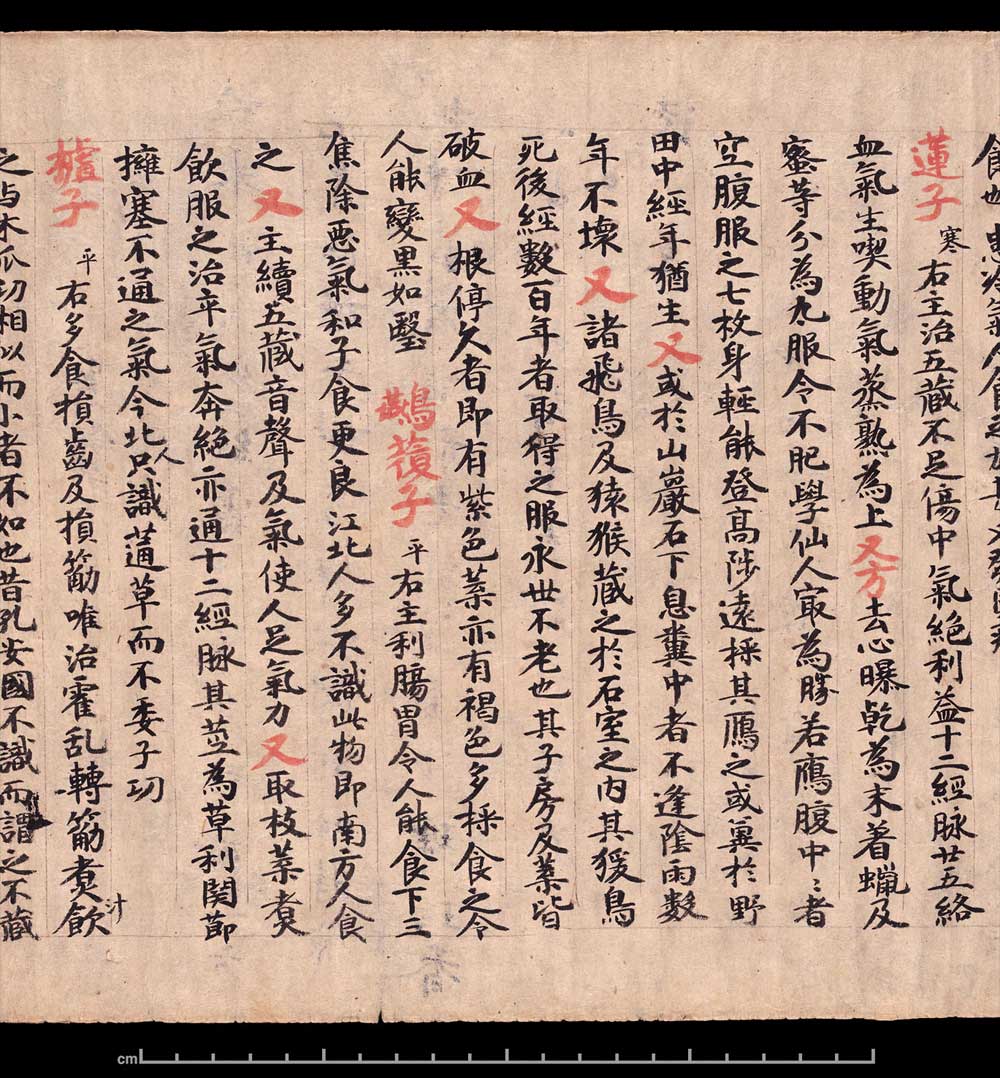 食也 患冷氣人食之
蓮子 寒 右主治五藏不足傷中氣絶利益十二經脉廿五絡
血氣生喫動氣蒸熟為上又方去心曝乾為末著蠟及
蜜等分為丸服令不肥學仙人冣為勝若鴈腹中〻者
空腹服之七枚身輕能登髙陟遠採其鴈之或糞於野
田中經年猶生又或於山巖石下息糞中者不逢陰雨數
年不壞又諸飛鳥及猿猴藏之於石室之内其猨鳥
死後經數百年者取得之服永世不老也其子房及葉皆
破血又根停久者即有紫色葉亦有褐色多採食之令
人能變黒如瑿 鷰䕨子 平 右主利腸胃令人能食下三
焦除惡氣和子食更良江北人多不識此物即南方人食
之又主續五藏音聲及氣使人足氣力又取枝葉煮
飲服之治卒氣奔絶亦通十二經脉其莖為草利関節
擁塞不通之氣今北人只識蓪草而不委子功
樝子 平 右多食損齒及損筋唯治霍乱轉筋煮汁飲
之与木瓜功相似而小者不如也昔孔安國不識而謂之不藏
cm